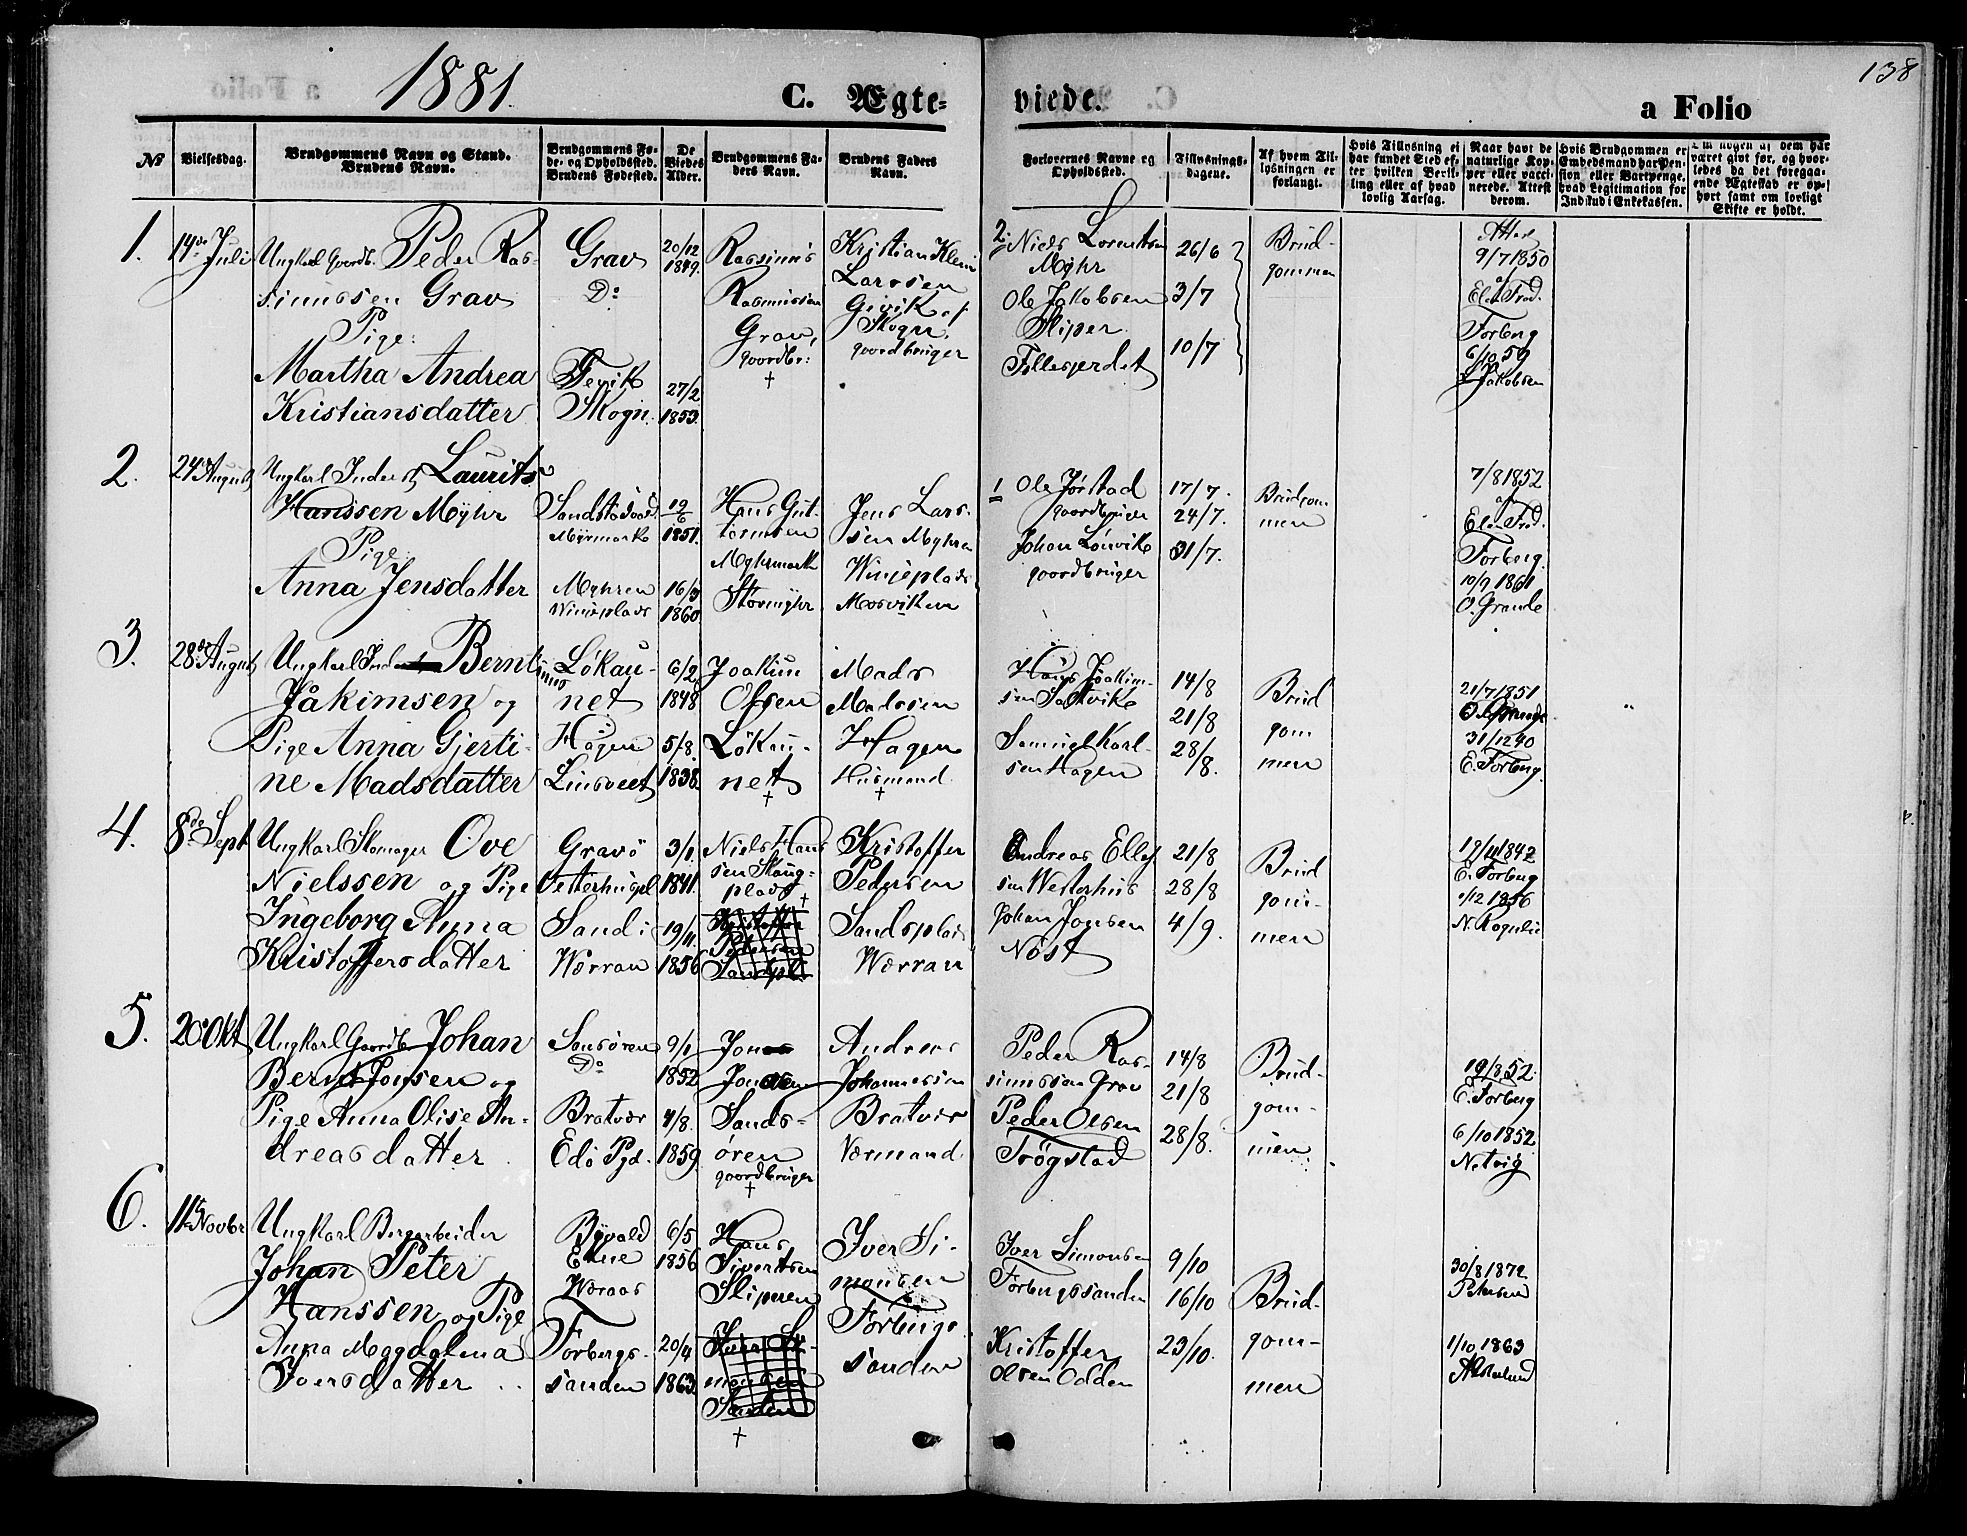 138
1881.
C. Ægte-
viede.
a Folio
No
Vielsesdag.
Brudgommens Navn og Stand.
Brudens Navn.
Brudgommens Fø-
de- og Opholdssted.
Brudens Fødested.
De
Viedes
Alder.
Brudgommens Fa-
ders Navn.
Brudens Faders
Navn.
Forlovernes Navne og
Opholdssted.
Tillysnings-
dagene.
Af hvem Til-
lysningen er
forlangt.
Hvis Tillysning ei
har fundet Sted ef-
ter hvilken Bevil-
ling eller af hvad
lovlig Aarsag.
Naar havt de
naturlige Kop-
per eller vacci-
nerede. Attest
derom.
Hvis Brudgommen er
Embedsmand har Pen-
sion eller Vartpenge,
hvad Legitimation for
Indskud i Enkekassen.
Om nogen af dem har
været givt før, og hvor-
ledes da det foregaa-
ende Ægteskab er op-
hørt samt om lovligt
Skifte er holdt.
1.
14de Juli
Ungkarl Gaardb. Peder Ras-
simussen Grav
Pige:
Martha Andrea
Kristiansdatter
Grav
Do
Skogn.
20/12
1849.
27/2
1853.
Rassimus
Rasmussen
Grav,
gaardbr:
†
Kristian Klein
Larssen
Skogn,
gaardbruger
2.
Niels Lorntsen
Myhr
Ole Jakobsen
Sliper
Fillesgerdet
26/6
3/7
10/7
Brud-
gommen
Attest
9/7 1850
af
Forberg
6/10 59
Jakobsen
2.
24 August
Ungkarl Inderst Laurits
Hanssen Myhr
Pige
Anna Jensdatter
Myrmark
Myhren
Winjeplads
12/6
1851.
16/3
1860
Hans Gut-
tormsen
Myhrmark
Stormyhr
Jens Lars-
sen Myhren
Winjeplads
Mosviken
1
Ole Jørstad
gaardbruger
Johan Lönvik
gaardbruger
17/7.
24/7.
31/7.
Brudgom-
men
7/8 1852
af
Forberg
10/9 1861
O. Grande
3.
28de August
Ungkarl Ind. Bernt
Jåkimsen og
Pige Anna Gjerti-
ne Madsdatter
Lökau-
net
Hagen
6/2
1848
5/8.
1838.
Joakim
Olsen
Lökau-
net
†
Mads
Madssen
Hagen
Husmand
†
Hans Joakim-
sen Saltvik
Samuel Karl-
sen Hagen
14/8
21/8
28/8.
Brud
gom
men
21/7 1851
31/12 40
E. Forberg.
4.
8de Sept
Ungkarl Skomager Ove
Nielssen og Pige
Ingeborg Anna
Kristoffersdatter
Gravö
Vetterhuspl
Sand i
Werran
3/1.
1841.
19/11.
1856
Niels Hans
sen Skaug-
plads
†
Kristoffer
Pedersen
Sandspl
Kristoffer
Pedersen
Sandsplad
Werran
Andreas Ellef
sen Westerhus
Johan Jonsen
Nöst
21/8
28/8
4/9.
Brud
gom-
men
E. Forberg
1/12 1856
5.
20 Okt
Ungkarl Gaardb. Johan
Bernt Jonsen og
Pige Anna Olise An-
dreasdatter
Sandören
Do
Bratvær
Edö Pgd.
9/1
1852
4/8.
1859
Jonas
Sands-
ören
gaardbruger
†
Andreas
Johannessen
Bratvær
Værmand
Peder Ras-
simussen Grav
Peder Olsen
Trögstad
14/8
21/8
28/8.
Brud-
gom-
men
19/8 52.
E. Forberg
6/10 1852
Netvig
6.
11te Novbr
Ungkarl Bergarbeider
Johan Peter
Hanssen og Pige
Anna Magdalena
Iversdatter
Forbergs-
sanden
6/5
1856
20/4
1863.
Hans
Sivertsen
Sliperen
Iver Si-
monsen
Sanden
†
Iver Si-
monsen
Forbergs
sanden
Iver Simonsen
Forbergssanden
Kristoffer
Olsen Odden
9/10
16/10
23/10.
Brud-
gom-
men
30/8 1872
Petersen
1/10 1863